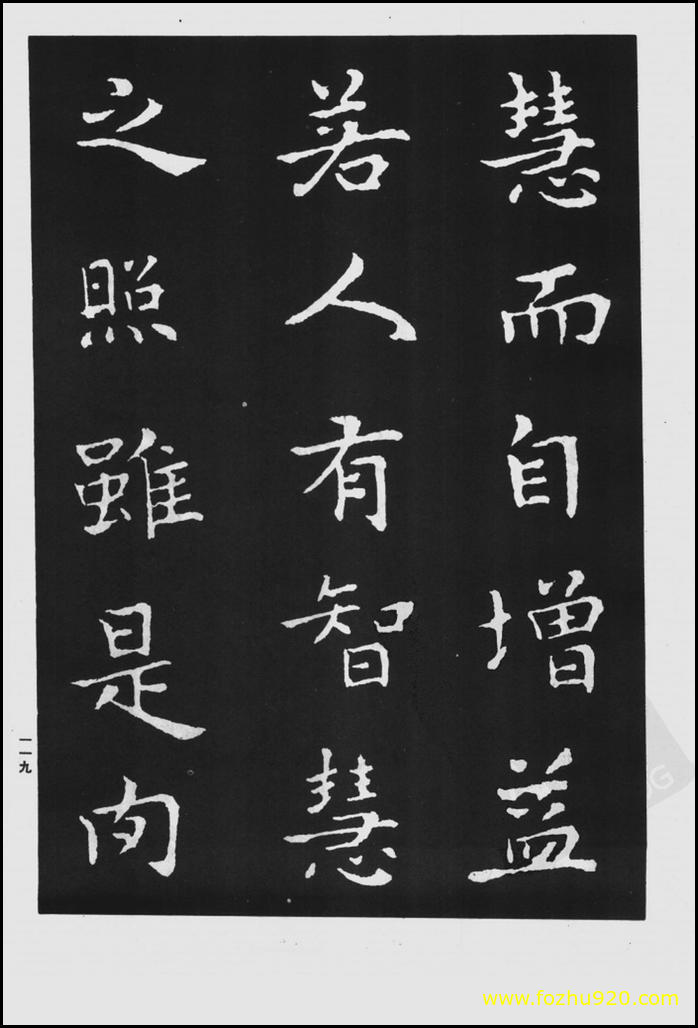 慧而自增益
若人有智慧
之照雖是肉
一一九
www.fozhu920.com